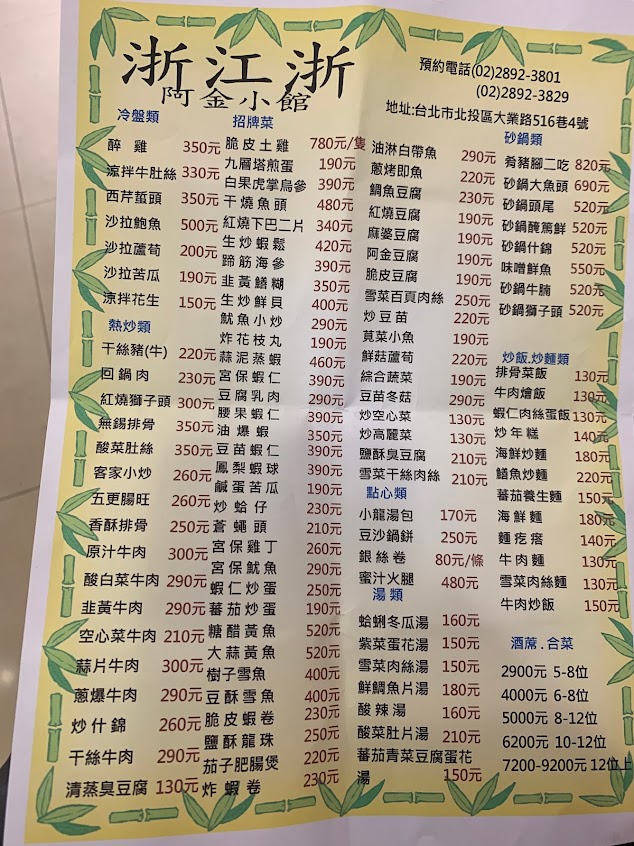 浙江浙
阿金小館
預約電話(02)2892-3801
(02)2892-3829
地址:台北市北投區大業路516巷4號
冷盤類
醉雞 350元
涼拌牛肚絲 330元
西芹蜇頭 350元
沙拉鮑魚 500元
沙拉蘆筍 200元
沙拉苦瓜 190元
涼拌花生 150元
熱炒類
干絲豬(牛) 220元
回鍋肉 230元
紅燒獅子頭 300元
無錫排骨 350元
酸菜肚絲 350元
客家小炒 260元
五更腸旺 260元
香酥排骨 250元
原汁牛肉 300元
酸白菜牛肉 290元
韭黃牛肉 290元
空心菜牛肉 210元
蒜片牛肉 300元
蔥爆牛肉 290元
炒什錦 260元
干絲牛肉 290元
清蒸臭豆腐 130元
招牌菜
脆皮土雞 780元/隻
九層塔煎蛋 190元
白果虎掌烏參 390元
干燒魚頭 480元
紅燒下巴二片 340元
生炒蝦鬆 420元
蹄筋海參 390元
韭黃鱔糊 350元
生炒鮮貝 400元
魷魚小炒 290元
炸花枝丸 190元
蒜泥蒸蝦 460元
宮保蝦仁 390元
豆腐乳肉 290元
腰果蝦仁 390元
油爆蝦 350元
豆苗蝦仁 390元
鳳梨蝦球 390元
鹹蛋苦瓜 190元
炒蛤仔 230元
蒼蠅頭 210元
宮保雞丁 260元
宮保魷魚 290元
蝦仁炒蛋 250元
蕃茄炒蛋 190元
糖醋黃魚 520元
大蒜黃魚 520元
樹子雪魚 400元
豆酥雪魚 400元
脆皮蝦卷 230元
鹽酥龍珠 250元
茄子肥腸煲 220元
炸蝦卷 230元
油淋白帶魚 290元
蔥烤即魚 220元
鯛魚豆腐 230元
紅燒豆腐 190元
麻婆豆腐 190元
阿金豆腐 190元
脆皮豆腐 190元
雪菜百頁肉絲 250元
炒豆苗 220元
莧菜小魚 190元
鮮菇蘆筍 220元
綜合蔬菜 190元
豆苗冬菇 290元
炒空心菜 130元
炒高麗菜 130元
鹽酥臭豆腐 210元
雪菜干絲肉絲 210元
點心類
小龍湯包 170元
豆沙鍋餅 250元
銀絲卷 80元/條
蜜汁火腿 480元
湯類
蛤蜊冬瓜湯 160元
紫菜蛋花湯 150元
雪菜肉絲湯 150元
鮮鯛魚片湯 180元
酸辣湯 160元
酸菜肚片湯 210元
蕃茄青菜豆腐蛋花
湯 150元
砂鍋類
肴豬腳二吃 820元
砂鍋大魚頭 690元
砂鍋頭尾 520元
砂鍋醃篤鮮 520元
砂鍋什錦 520元
味噌鮮魚 550元
砂鍋牛腩 520元
砂鍋獅子頭 520元
炒飯.炒麵類
排骨菜飯 130元
牛肉燴飯 130元
蝦仁肉絲蛋飯 130元
炒年糕 140元
海鮮炒麵 180元
鱔魚炒麵 220元
蕃茄養生麵 150元
海鮮麵 180元
麵疙瘩 140元
牛肉麵 130元
雪菜肉絲麵 130元
牛肉炒飯 150元
酒蓆.合菜
2900元 5-8位
4000元 6-8位
5000元 8-12位
6200元 10-12位
7200-9200元 12位上